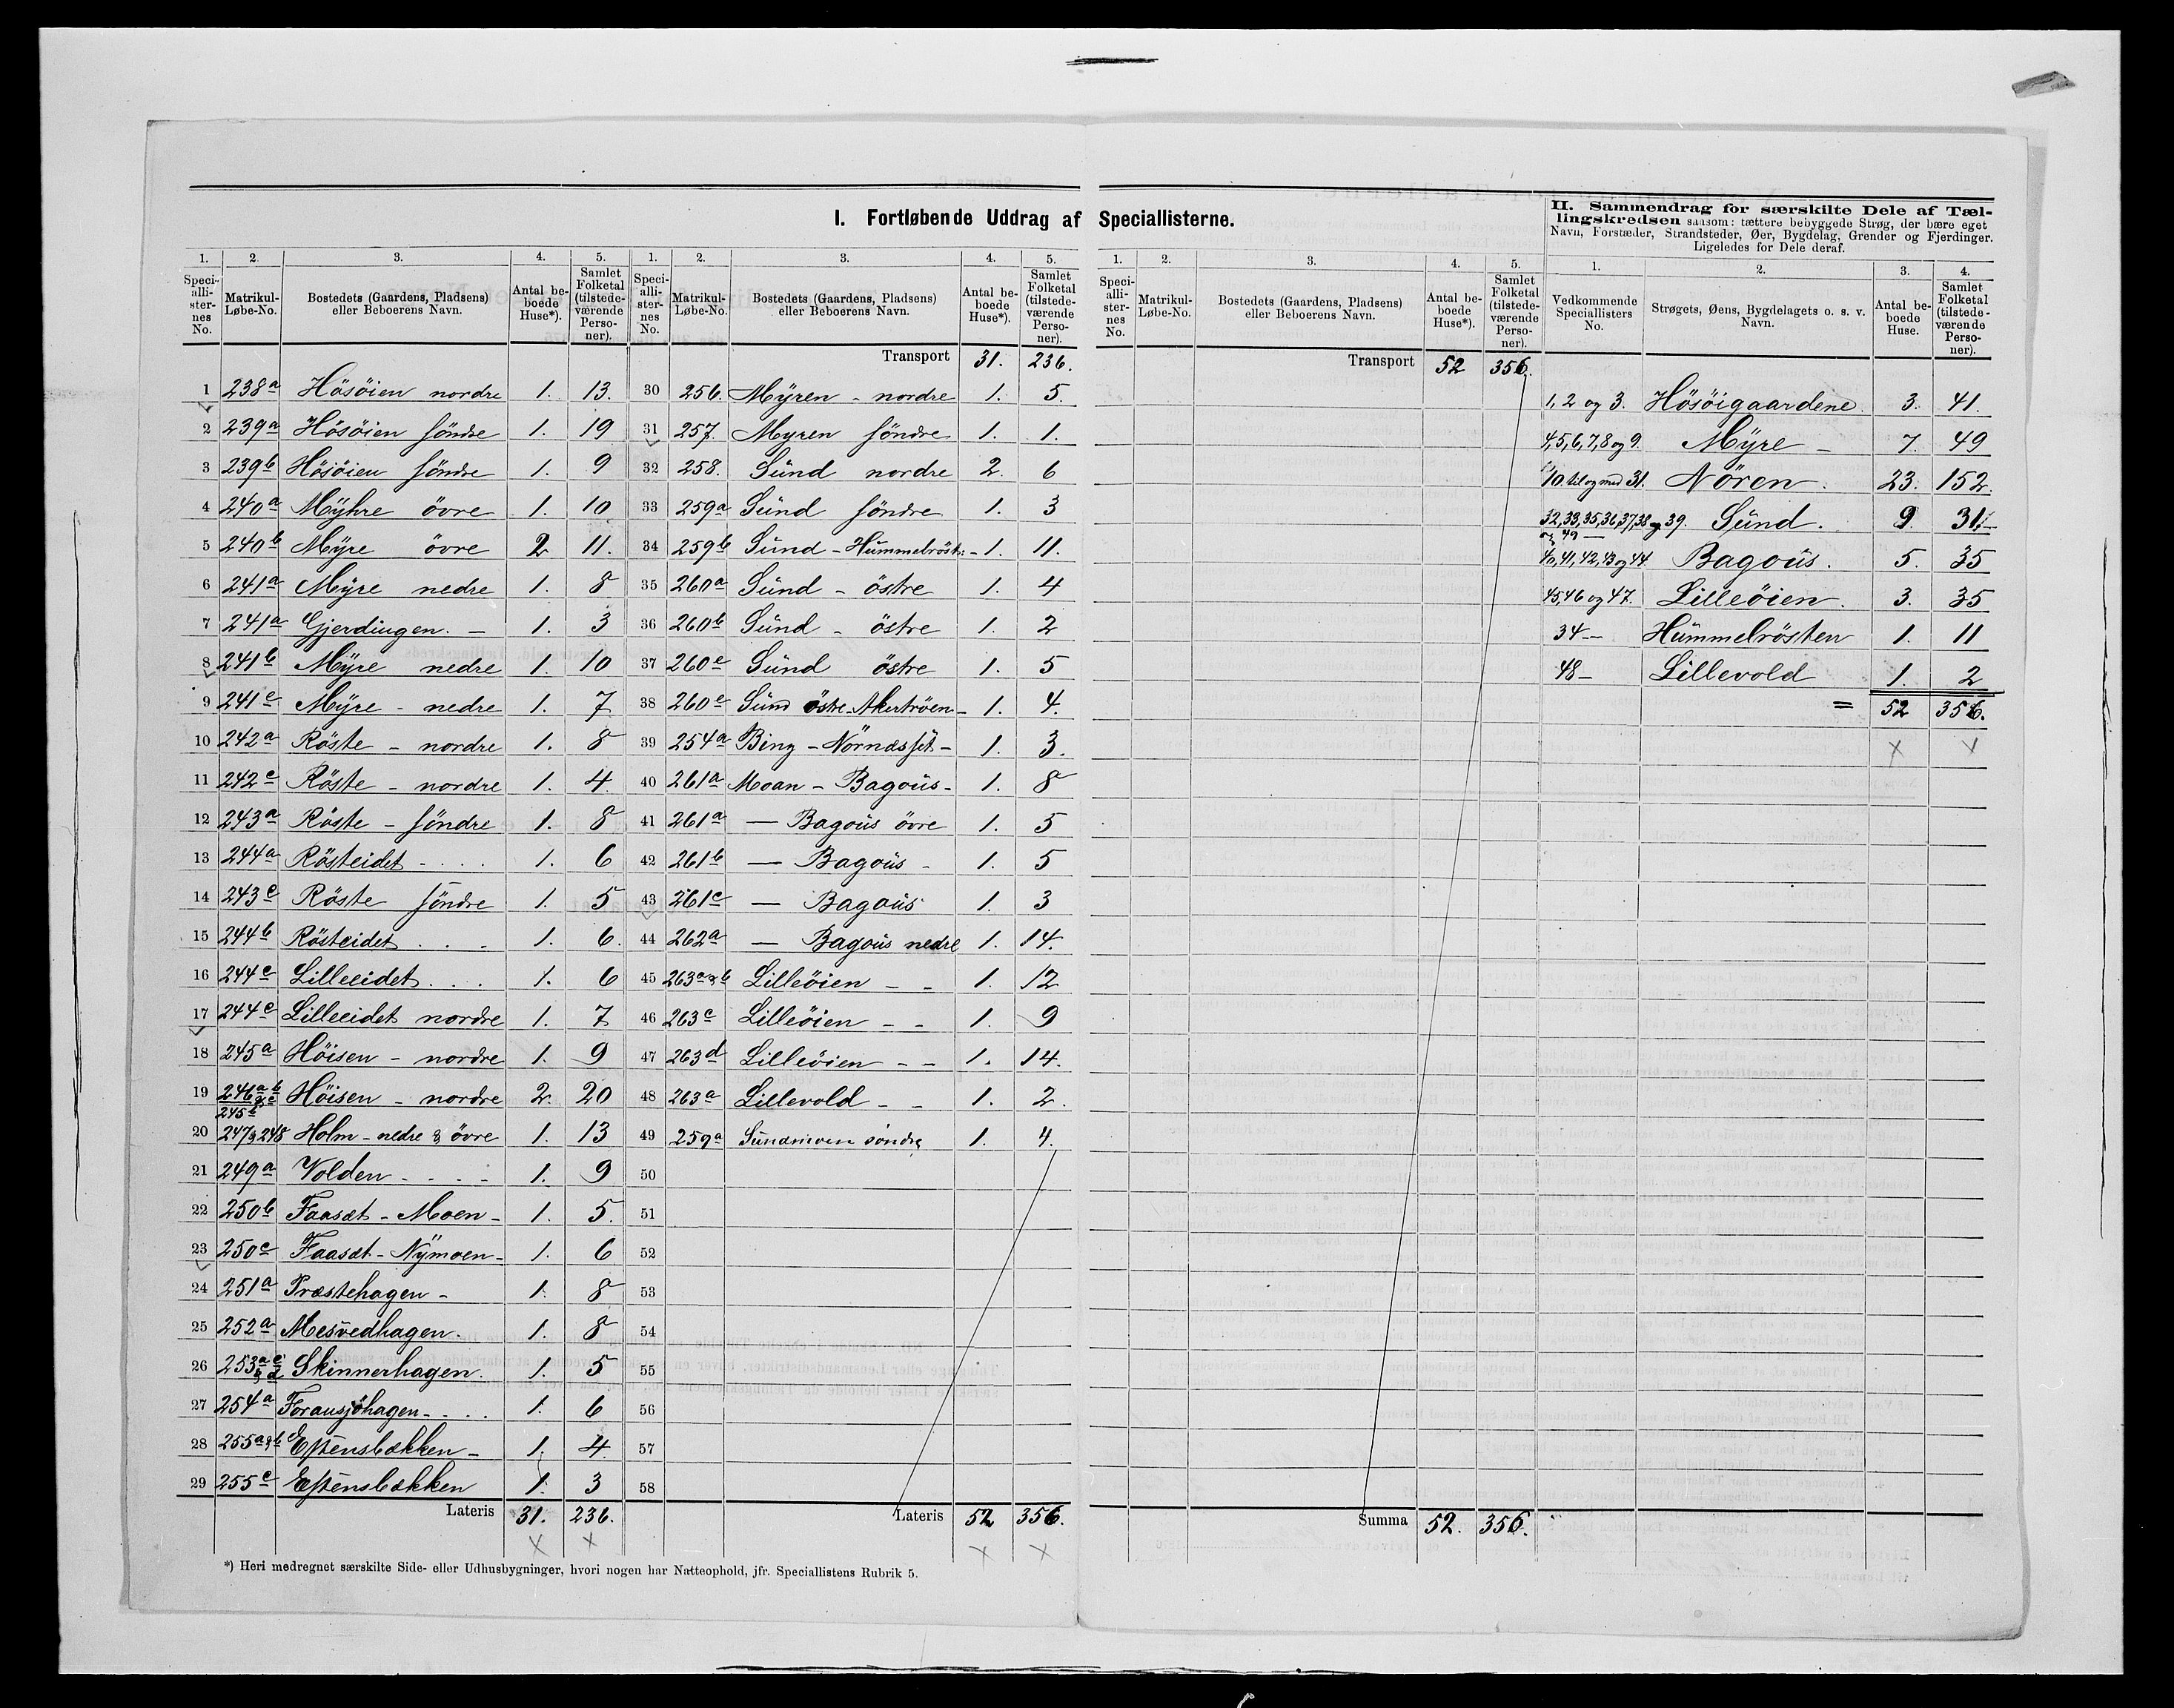 I. Fortløbende Uddrag af Speciallisterne.
1. 2 3. 4. 5.
Speci-alli-ster-nes No. Matrikul-Løbe-No. Bostedets (Gaardens, Pladsens) eller Beboerens Navn. Antal be-boede Huse*). Samlet Folketal (tilstede-værende Perso-ner).
1 238a Hösöien nordre 1. 13.
2 239a Hösöien söndre 1. 19
3 239b Hösöien söndre 1. 9
4 240a Mÿhre övre 1. 10
5 240b Mÿre övre 2 11.
6 241a Mÿre nedre 1. 8
7 241a Gjerdingen. – 1. 3
8 241b Mÿre nedre 1. 10
9 241c Mÿre - nedre 1. 7
10 242a Röste - nordre 1. 8
11 242c Röste - nordre 1. 4
12 243a Röste - söndre 1. 8
13 244a Rösteidet - . . . 1. 6
14 243c Röste söndre 1. 5
15 244b Rösteidet . . - 1. 6.
16 244c Lilleeidet . . . 1. 6
17 244c Lilleeidet nordre 1. 7
18 245a Höisen - nordre 1. 9
19 246a b & c 245b Höisen - nordre 2. 20
20 247 & 248 Holm - nedre & övre 1. 13
21 249a Volden - . - - 1. 9
22 250b Faasæt - Moen - 1. 5.
23 250c Faasæt - Nÿmoen - 1. 6
24 251a Præstehagen - 1. 8
25 252a Mesvedhagen. 1. 8
26 253a c & d Skinnerhagen. 1. 5
27 254a Foransjöhagen - . . . 1. 6
28 255a & b Estensbækken - 1. 4
29 255c Estensbækken 1. 3
Lateris 31. 236.
1. 2. 3. 4. 5.
Speci-alli-ster-nes No. Matrikul-Løbe-No. Bostedets (Gaardens, Pladsens) eller Beboerens Navn. Antal be-boede Huse*). Samlet Folketal (tilstede-værende Perso-ner).
Transport 31. 236.
30 256. Mÿren - nordre 1. 5.
31 257. Myren söndre 1. 1.
32 258. Sünd nordre 2. 6
33 259a Sünd söndre 1. 3
34 259b Sünd - Hümmelröst: - 1. 11.
35 260a Sünd - östre 1. 4
36 260b Sünd - östre 1. 2
37 260c Sünd östre 1. 5
38 260c Sünd östre - Akertröen - 1. 4.
39 254a Bing - Nörnæsset - 1. 3.
40 261a Moan - Bagoüs - 1. 8
41 261a — Bagoüs övre 1. 5
42 261b — Bagoüs - 1. 5
43 261c — Bagoüs 1. 3
44 262a — Bagoüs nedre 1. 14.
45 263a & b Lilleöien - - 1. 12
46 263c Lilleöien - - 1. 9
47 263d Lilleöien - - 1. 14.
48 263a Lillevold - - 1. 2.
49 259a Sündmoen söndre 1. 4.
50
51
52
53
54
55
56
57
58
Lateris 52 356.
*) Heri medregnet særskilte Side- eller Udhusbygninger, hvori nogen har Natteophold, jfr. Speciallistens Rubrik 5.
1. 2. 3. 4. 5.
Speci-alli-ster-nes No. Matrikul-Løbe-No. Bostedets (Gaardens, Pladsens) eller Beboerens Navn. Antal be-boede Huse*). Samlet Folketal (tilstede-værende Perso-ner).
Transport 52 356.
Summa 52. 356.
II. Sammendrag for særskilte Dele af Tæl-
lingskredsen saasom: tættere bebyggede Strøg, der bære eget
Navn, Forstæder, Strandsteder, Øer, Bygdelag, Grender og Fjerdinger.
Ligeledes for Dele deraf.
1. 2. 3. 4.
Vedkommende Speciallisters No. Strøgets, Øens, Bygdelagets o. s. v. Navn. Antal be-boede Huse. Samlet Folketal (tilstede-værende Perso-ner).
1, 2 og 3. Hösöigaardene. 3. 41.
4, 5, 6, 7, 8 og 9. Mÿre - 7. 49
10 til og med 31. Nören . 23. 152.
32, 33, 35, 36, 37, 38 og 39. og 49 — Sünd . 9. 31.
40, 41, 42, 43 og 44. Bagoüs . 5. 35
45, 46 og 47. Lilleöien . 3. 35
34 — Hümmelrösten 1. 11
48 - Lillevold 1. 2
= 52 356.